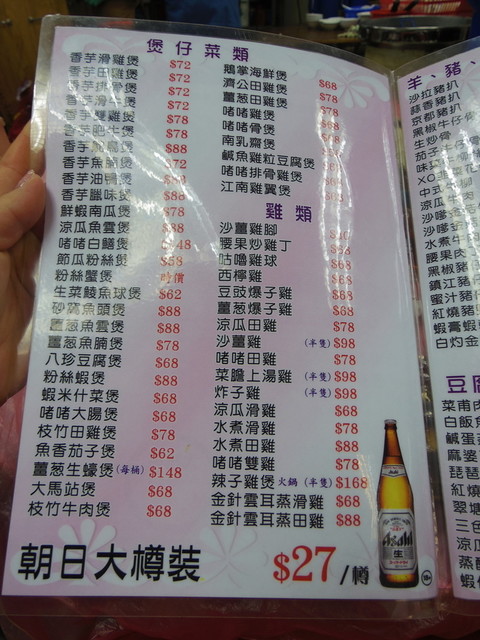 煲仔菜類
香芋滑雞煲 $72
香芋田雞煲 $72
香芋排骨煲 $72
香芋滑牛煲 $72
香芋雙雞煲 $78
香芋肥牛煲 $78
香芋鴛鴦煲 $88
香芋魚腩煲 $72
香芋油鴨煲
香芋臘味煲 $88
鮮蝦南瓜煲 $78
涼瓜魚雲煲 $88
啫啫白鱔煲
節瓜粉絲煲 $58
粉絲蟹煲 時價
生菜鯪魚球煲 $62
砂窩魚頭煲 $88
薑葱魚雲煲 $88
薑葱魚腩煲 $78
八珍豆腐煲 $68
粉絲蝦煲 $88
蝦米什菜煲 $68
啫啫大腸煲 $68
枝竹田雞煲 $78
魚香茄子煲 $62
薑葱生蠔煲(每桶) $148
大馬站煲 $68
枝竹牛肉煲 $68
鵝掌海鮮煲 $68
濟公田雞煲 $78
薑葱田雞煲 $78
啫啫雞煲 $68
啫啫骨煲 $68
南乳齋煲
鹹魚雞粒豆腐煲 $68
啫啫排骨雞煲 $68
江南雞翼煲 $68
雞類
沙薑雞腳
腰果炒雞丁 $68
咕嚕雞球 $68
西檸雞 $68
豆豉爆子雞 $68
薑葱爆子雞 $68
涼瓜田雞 $78
沙薑雞 (半隻) $98
啫啫田雞 $78
菜膽上湯雞 (半隻) $98
炸子雞 (半隻) $98
涼瓜滑雞 $68
水煮滑雞 $78
水煮田雞 $88
啫啫雙雞 $78
辣子雞煲 火鍋 (半隻) $168
金針雲耳蒸滑雞 $68
金針雲耳蒸田雞 $88
朝日大樽裝 $27/樽
Asahi
生
羊、豬、
沙拉豬扒
蒜香豬扒
京都豬扒
黑椒牛仔骨
生炒骨
中式牛柳
涼瓜牛肉
水煮牛
腰果肉
黑椒豬
鎮江豬
蜜汁豬
紅燒豬
蝦膏蝦
白灼金
豆腐
菜甫肉
白飯魚
鹹蛋
麻婆
琵琶
紅燒
翠塘
三色
涼瓜
蒸釀
蝦